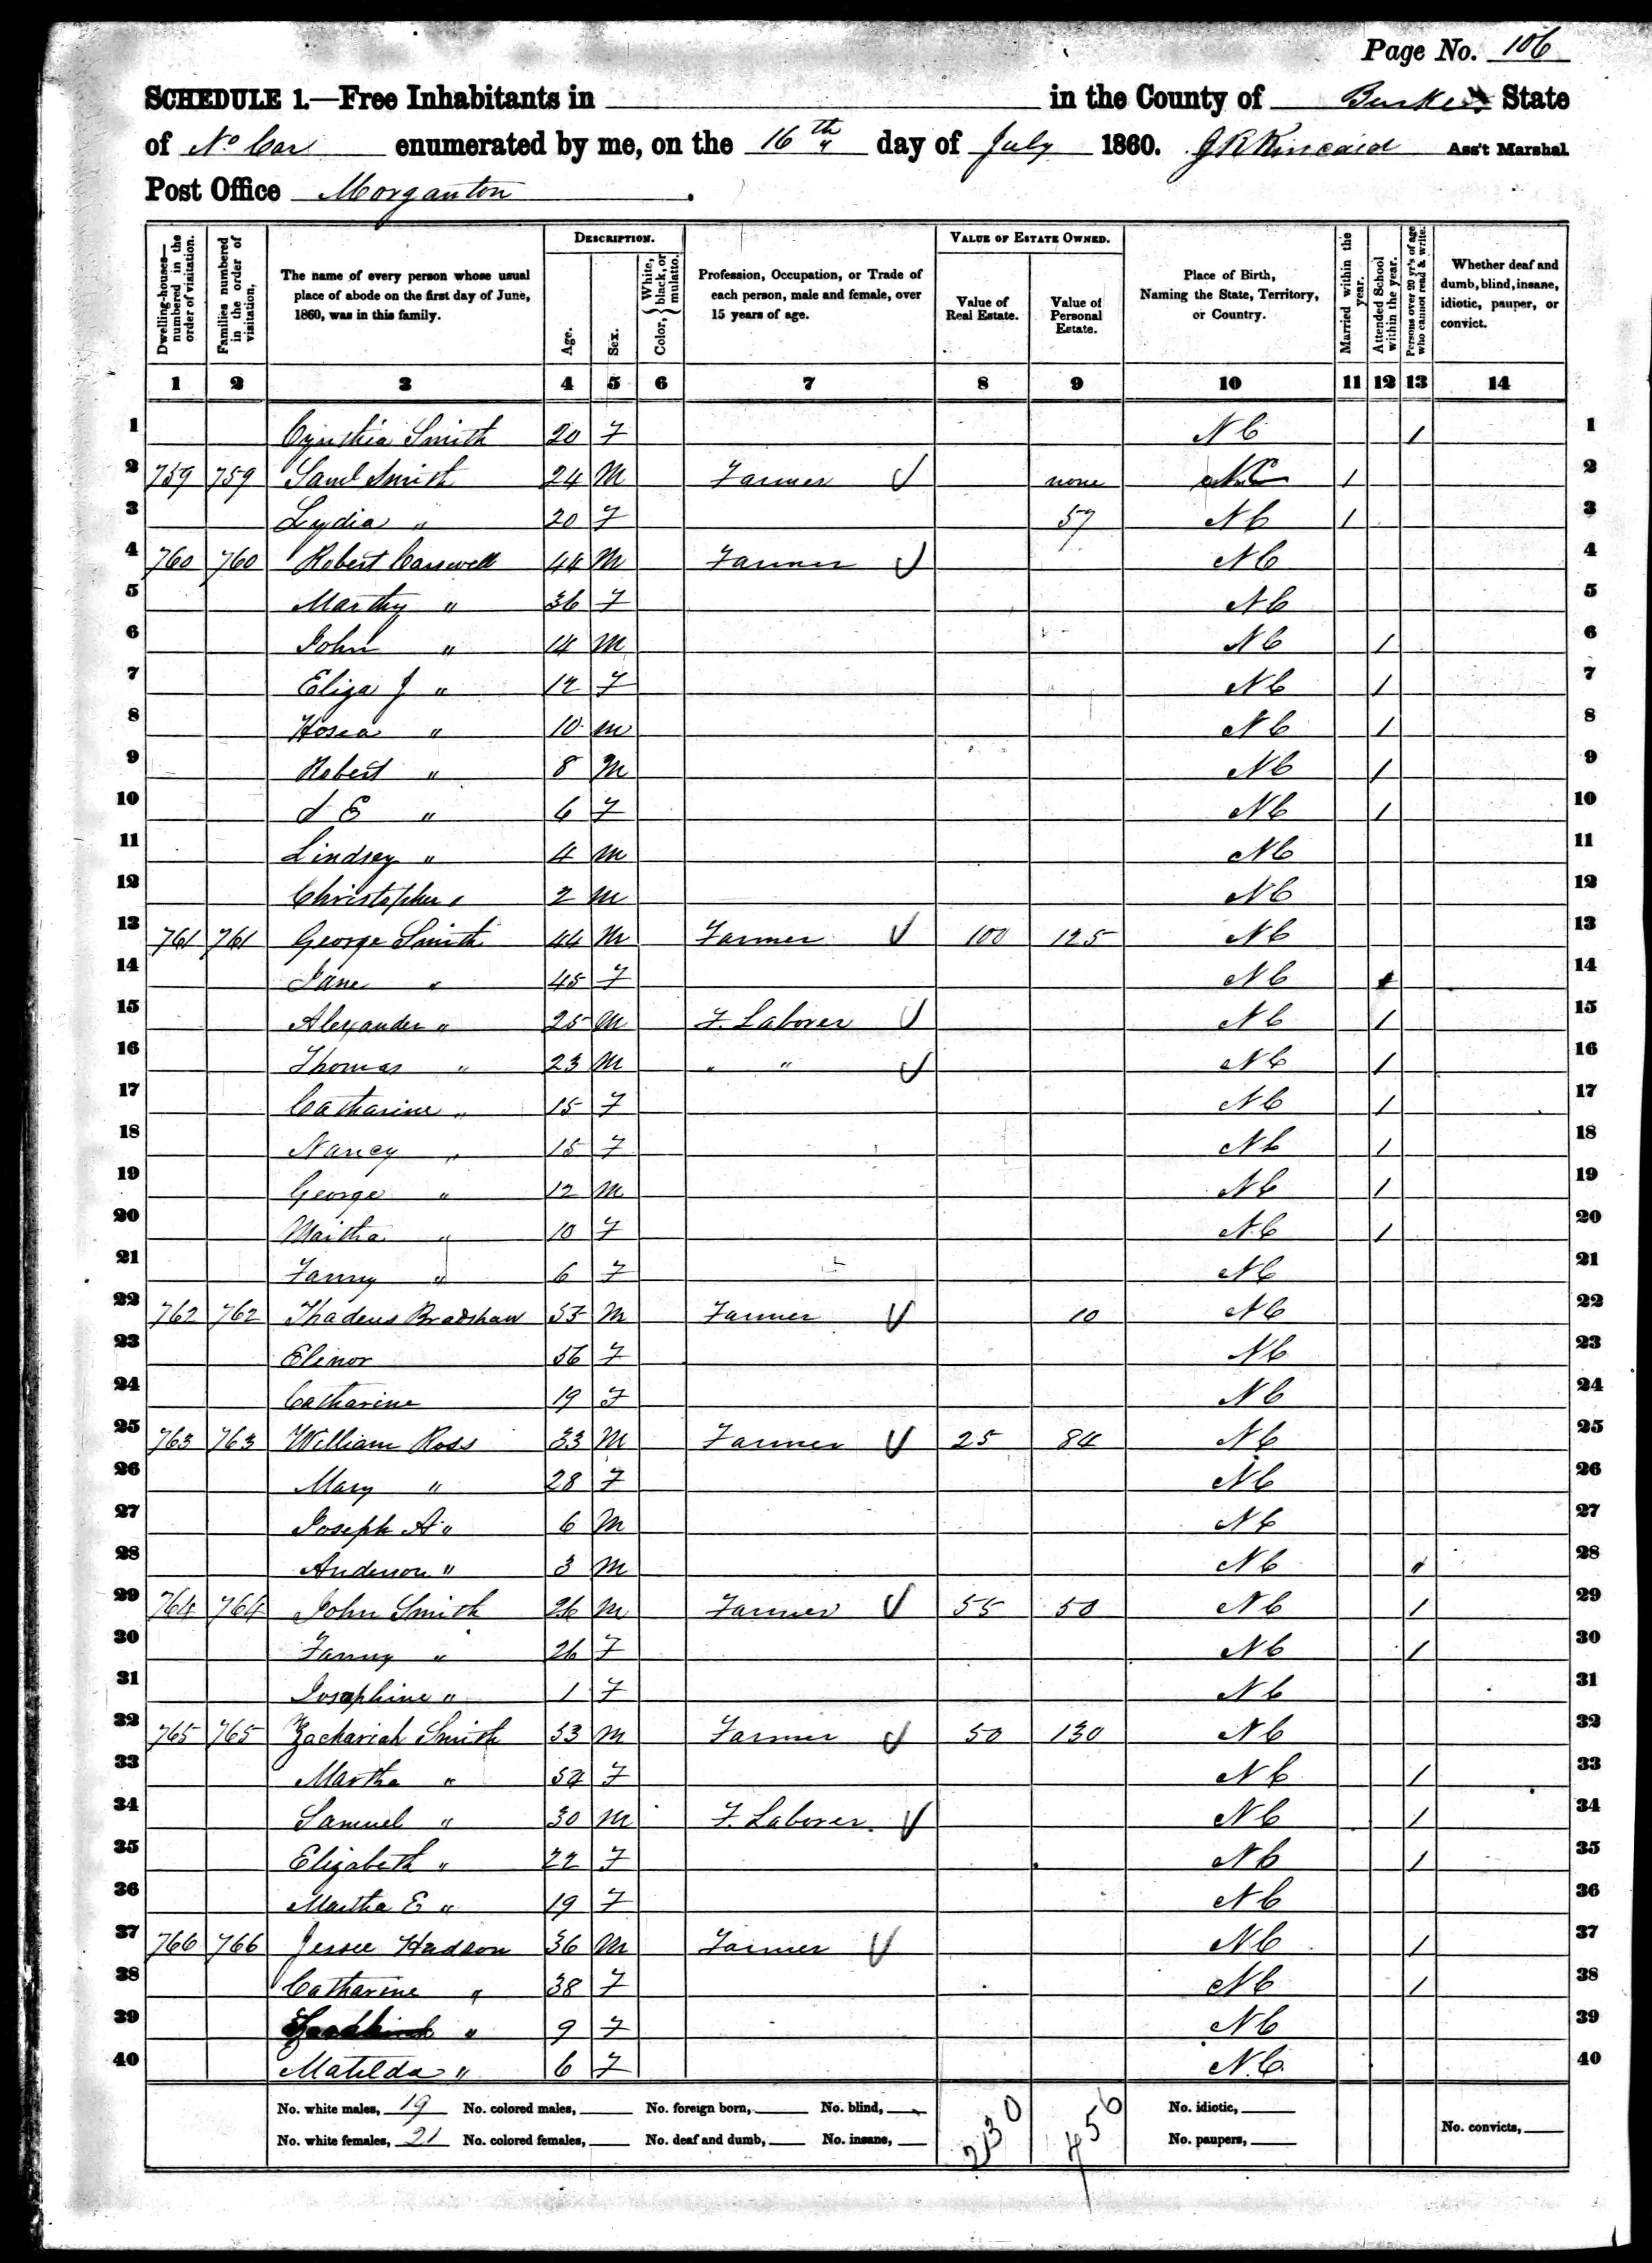 Page No. 106
SCHEDULE 1.—Free Inhabitants in in the County of Burke State
of No Car enumerated by me, on the 16th day of July 1860. J R Kincaid Ass't Marshal
Post Office Morganton.
Dwelling-houses—numbered in the order of visitation.
Families numbered in the order of visitation.
The name of every person whose usual place of abode on the first day of June, 1860, was in this family.
DESCRIPTION.
Age.
Sex.
Color, White, black, or mulatto.
Profession, Occupation, or Trade of each person, male and female, over 15 years of age.
VALUE OF ESTATE OWNED.
Value of Real Estate.
Value of Personal Estate.
Place of Birth, Naming the State, Territory, or Country.
Married within the year.
Attended School within the year.
Persons over 20 yr's of age who cannot read & write.
Whether deaf and dumb, blind, insane, idiotic, pauper, or convict.
1 2 3 4 5 6 7 8 9 10 11 12 13 14
1 Cynthia Smith 20 F N C / 1
2 759 759 Saml Smith 24 M Farmer none N C / 2
3 Lydia " 20 F 57 N C / 3
4 760 760 Robert Carswell 44 M Farmer N C 4
5 Marthy " 36 F N C 5
6 John " 14 M N C / 6
7 Eliza J " 12 F N C / 7
8 Hosea " 10 M N C / 8
9 Robert " 8 M N C / 9
10 E " 6 F N C / 10
11 Lindsey " 4 M N C 11
12 Christopher " 2 M N C 12
13 761 761 George Smith 44 M Farmer 100 125 N C 13
14 Jane " 45 F N C 14
15 Alexander " 25 M F. Laborer N C / 15
16 Thomas " 23 M " " N C / 16
17 Catharine " 15 F N C / 17
18 Nancy " 15 F N C / 18
19 George " 12 M N C / 19
20 Martha " 10 F N C / 20
21 Fanny " 6 F N C 21
22 762 762 Thadeus Bradshaw M Farmer 10 N C 22
23 Elinor 56 F N C 23
24 Catharine 19 F N C 24
25 763 763 William Ross 33 M Farmer 25 84 N C 25
26 Mary " 28 F N C 26
27 Joseph A " 6 M N C 27
28 Anderson " 3 M N C 28
29 764 764 John Smith 26 M Farmer 55 50 N C / 29
30 Fanny " 26 F N C / 30
31 Josaphine " 1 F N C 31
32 765 765 Zachariah Smith 53 M Farmer 50 130 N C 32
33 Martha " 54 F N C / 33
34 Samuel " 30 M F. Laborer N C / 34
35 Elizabeth " 22 F N C / 35
36 Martha E " 19 F N C 36
37 766 766 Jessee Hudson 36 M Farmer N C / 37
38 Catharine " 38 F N C / 38
39 " 9 F N C 39
40 Matilda " 6 F N.C. 40
No. white males, 19 No. colored males, No. foreign born, No. blind, 230 456 No. idiotic,
No. white females, 21 No. colored females, No. deaf and dumb, No. insane, No. paupers, No. convicts,